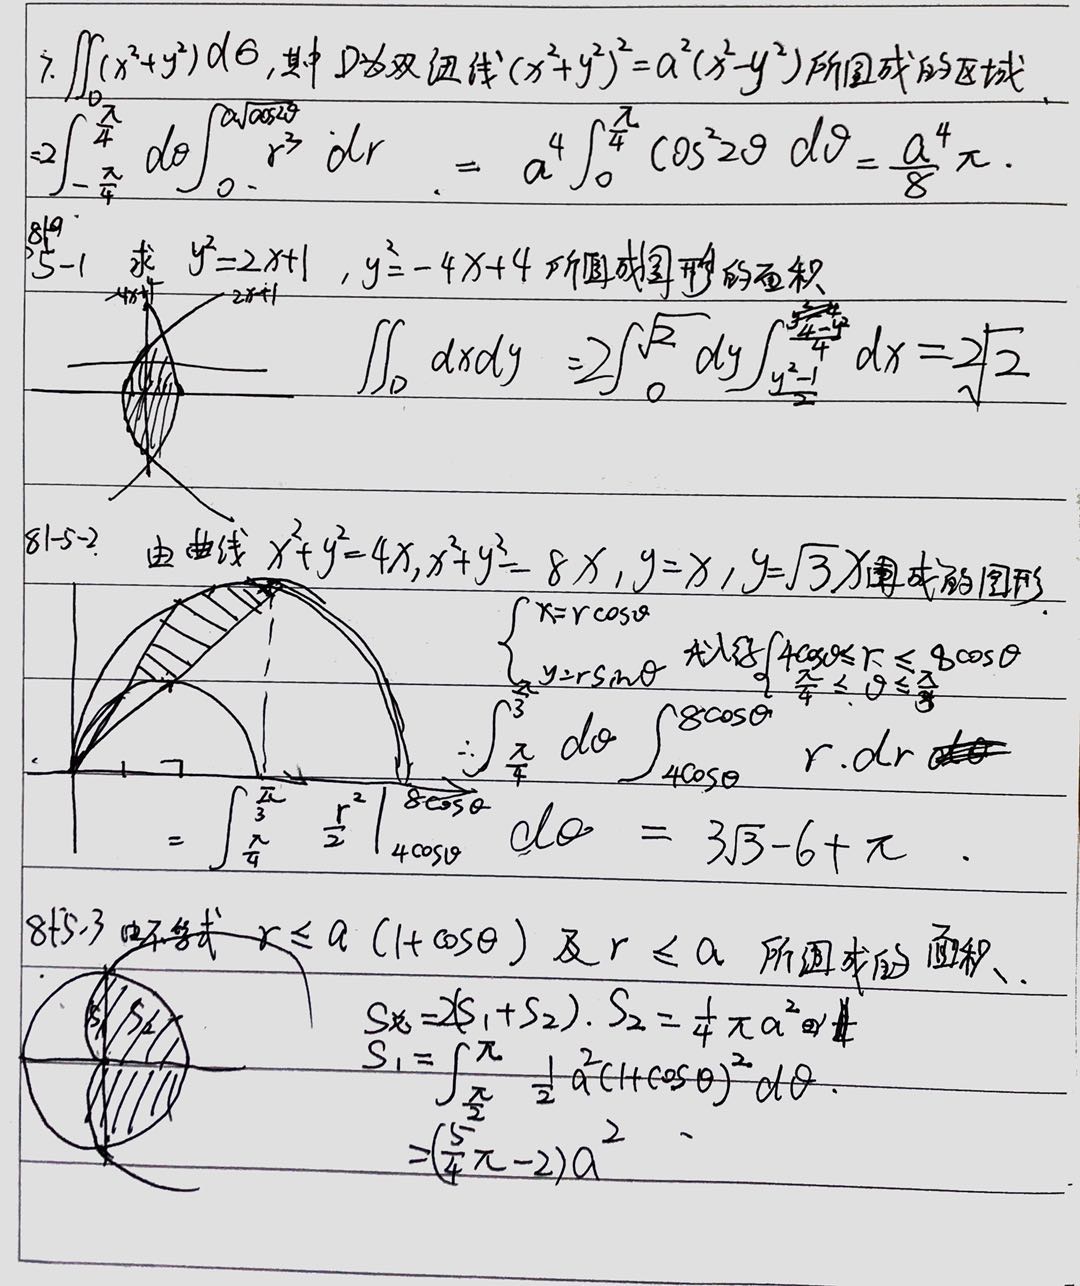 7. ∬_D (x²+y²)dσ, 其中 D为双纽线 (x²+y²)²=a²(x²-y²)所围成的区域.
=2∫_{-π/4}^{π/4} dθ ∫_0^{a√cos2θ} r³ dr = a⁴ ∫_0^{π/4} cos²2θ dθ = a⁴/8 π.
5-1 求 y²=2x+1, y²=-4x+4 所围成图形的面积
-4x+4 2x+1
∬_D dxdy =2∫_0^{√2} dy ∫_{(y²-1)/2}^{(4-y²)/4} dx = 2√2
81-5-2. 由曲线 x²+y²=4x, x²+y²=8x, y=x, y=√3x围成的图形.
{x=rcosθ y=rsinθ 代入得{4cosθ≤r≤8cosθ π/4≤θ≤π/3
∴∫_{π/4}^{π/3} dθ ∫_{4cosθ}^{8cosθ} r.dr
= ∫_{π/4}^{π/3} r²/2 |_{4cosθ}^{8cosθ} dθ = 3√3-6+π.
81-5-3 由不等式 r≤a(1+cosθ) 及 r≤a 所围成的面积.
S₁ S₂
S总=2(S₁+S₂). S₂=1/4πa²
S₁=∫_{π/2}^{π} 1/2 a²(1+cosθ)² dθ.
=(5/4π-2)a²